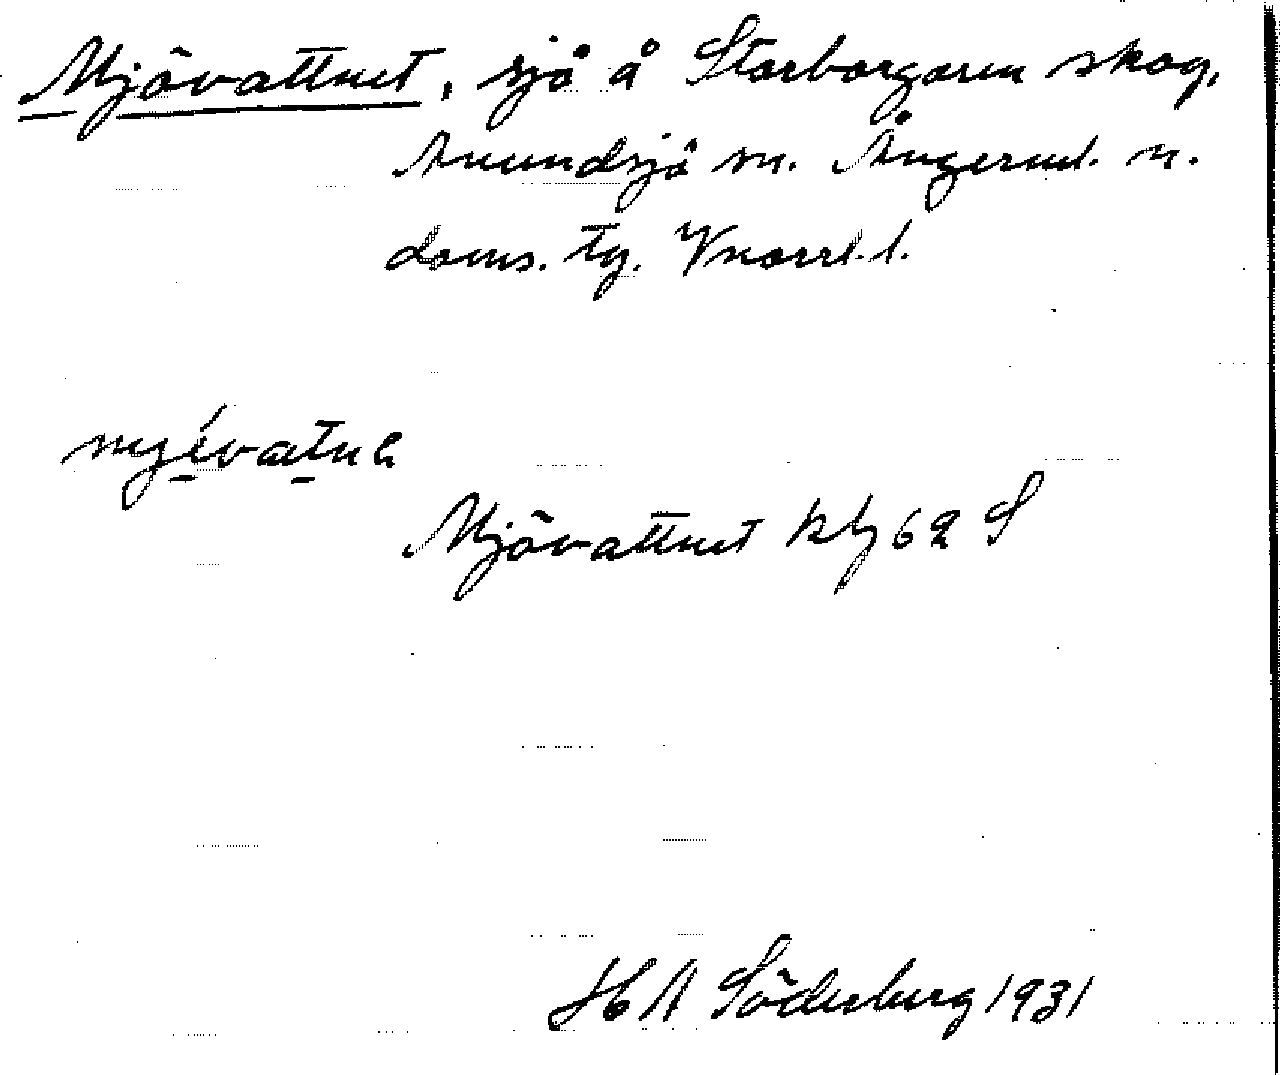 Mjövattnet, sjö å Storborgaren skog,
Anundsjö sn. Ångerml. n.
doms. tg. Vnorrl. l.
Mjövattnet kbl 62 S
H A Söderberg 1931